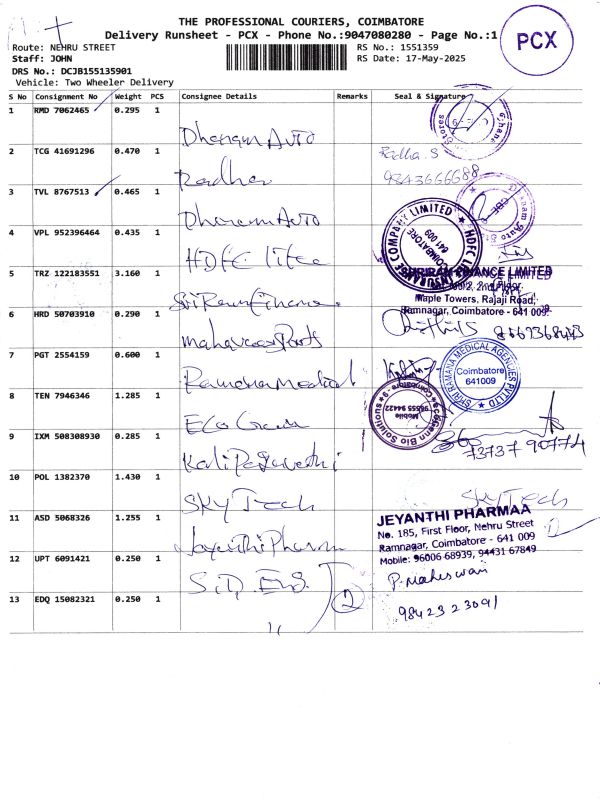 THE PROFESSIONAL COURIERS, COIMBATORE
Delivery Runsheet - PCX - Phone No.:9047080280 - Page No.:1
PCX
Route: NEHRU STREET
RS No.: 1551359
Staff: JOHN
RS Date: 17-May-2025
DRS No.: DCJB155135901
Vehicle: Two Wheeler Delivery
S No Consignment No Weight PCS Consignee Details Remarks Seal & Signature
1 RMD 7062465 0.295 1 Dhanam Auto
2 TCG 41691296 0.470 1 Radha Radha. S
9843666688
3 TVL 8767513 0.465 1 Dhanam Auto
4 VPL 952396464 0.435 1 HDFC life COMPANY LIMITED HDFC COIMBATORE 641 009
5 TRZ 122183551 3.160 1 SHRIRAM FINANCE LIMITED
2nd Floor
Maple Towers, Rajaji Road,
Ramnagar, Coimbatore - 641 009
6 HRD 50703910 0.290 1
7 PGT 2554159 0.600 1 Ramana Medical SHRI RAMANA MEDICAL AGENCIES PVT LTD
Coimbatore
641009
8 TEN 7946346 1.285 1 Eco Bio Solutions Coimbatore Mobile 94422
9 IXM 508308930 0.285 1 73737 90774
10 POL 1382370 1.430 1 SKY Tech Sky Tech
11 ASD 5068326 1.255 1 Jayanthi Pharma JEYANTHI PHARMAA
No. 185, First Floor, Nehru Street
Ramnagar, Coimbatore - 641 009
Mobile: 96006 68939, 94431 67849
12 UPT 6091421 0.250 1 S.D. Eng. P. Maheswari
13 EDQ 15082321 0.250 1 11 2 98423 23091